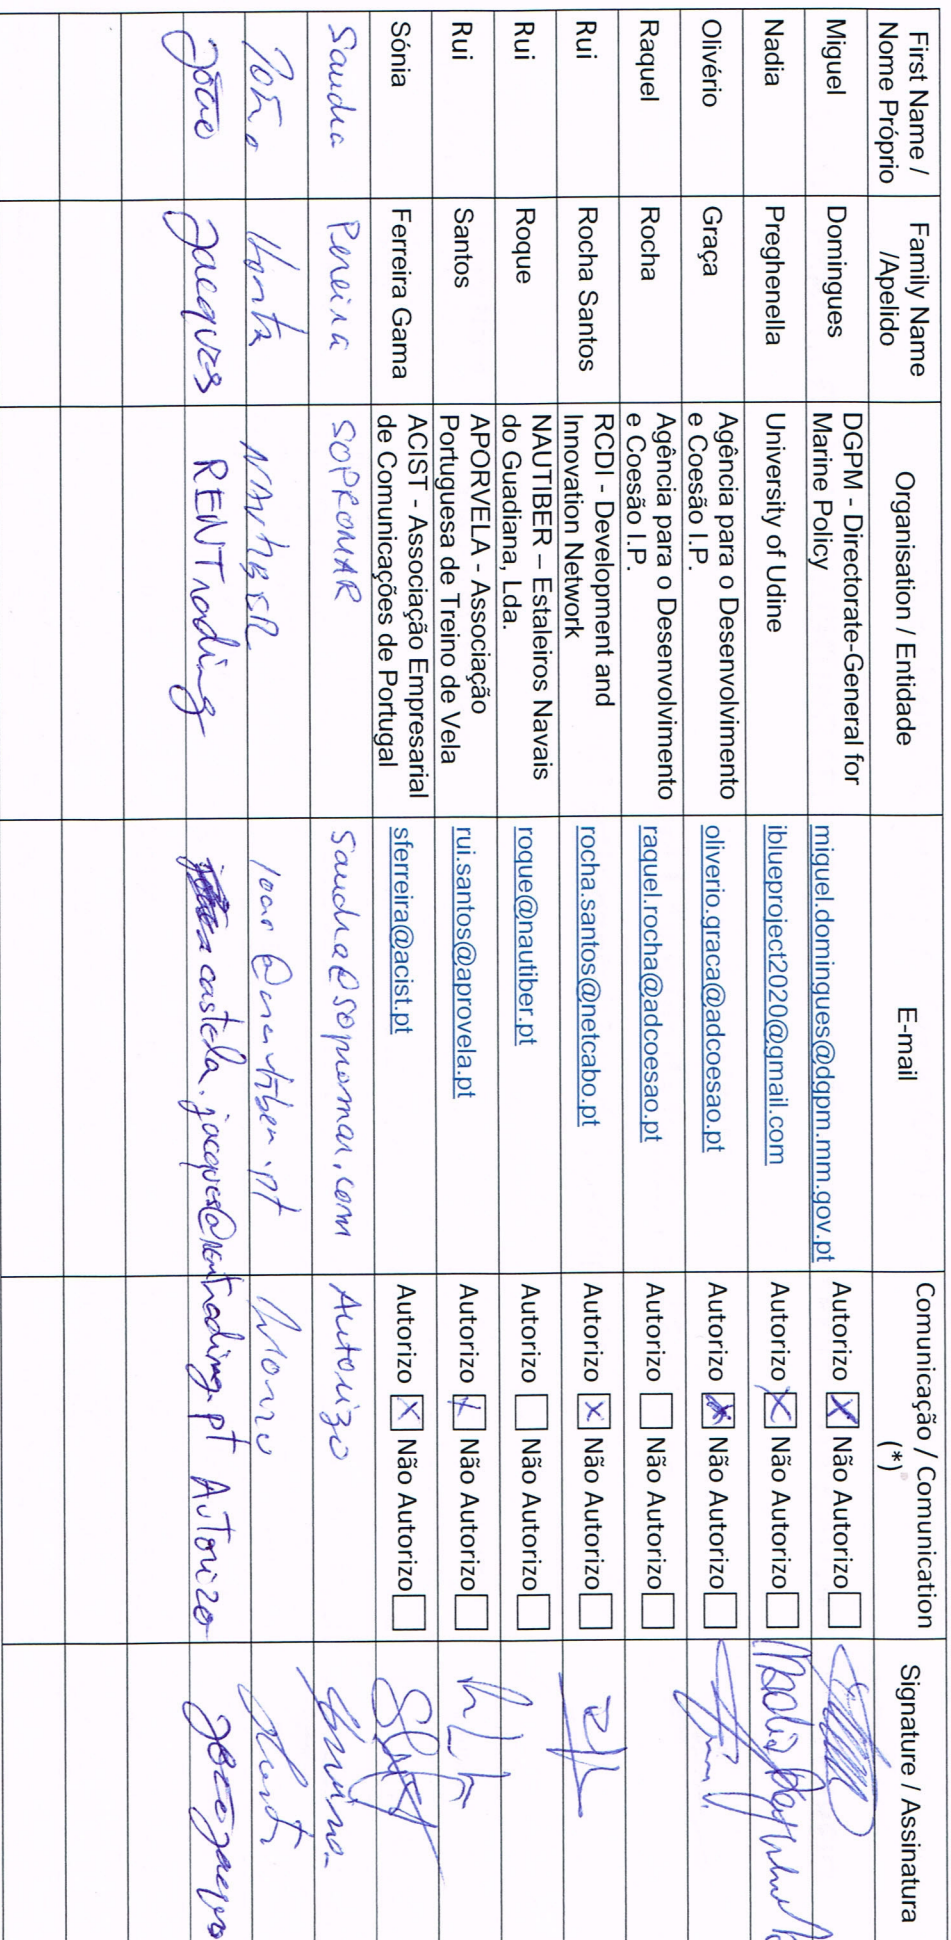 First Name / Nome Próprio
Family Name /Apelido
Organisation / Entidade
E-mail
Comunicação / Comunication (*)
Signature / Assinatura
Miguel
Domingues
DGPM - Directorate-General for
Marine Policy
miguel.domingues@dgpm.mm.gov.pt
Autorizo X Não Autorizo
Nadia
Preghenella
University of Udine
iblueproject2020@gmail.com
Autorizo X Não Autorizo
Olivério
Graça
Agência para o Desenvolvimento
e Coesão I.P.
oliverio.graca@adcoesao.pt
Autorizo X Não Autorizo
Raquel
Rocha
Agência para o Desenvolvimento
e Coesão I.P.
raquel.rocha@adcoesao.pt
Autorizo Não Autorizo
Rui
Rocha Santos
RCDI - Development and
Innovation Network
rocha.santos@netcabo.pt
Autorizo X Não Autorizo
Rui
Roque
NAUTIBER – Estaleiros Navais
do Guadiana, Lda.
roque@nautiber.pt
Autorizo Não Autorizo
Rui
Santos
APORVELA - Associação
Portuguesa de Treino de Vela
rui.santos@aprovela.pt
Autorizo X Não Autorizo
Sónia
Ferreira Gama
ACIST - Associação Empresarial
de Comunicações de Portugal
sferreira@acist.pt
Autorizo X Não Autorizo
Sandra
Pereira
SOPROMAR
sandra@sopromar.com
Autorizo
João
Horta
NAUTIBER
joao@nautiber.pt
Autorizo
João
Jacques
RENTrading
castela.jacques@rentrading.pt
Autorizo